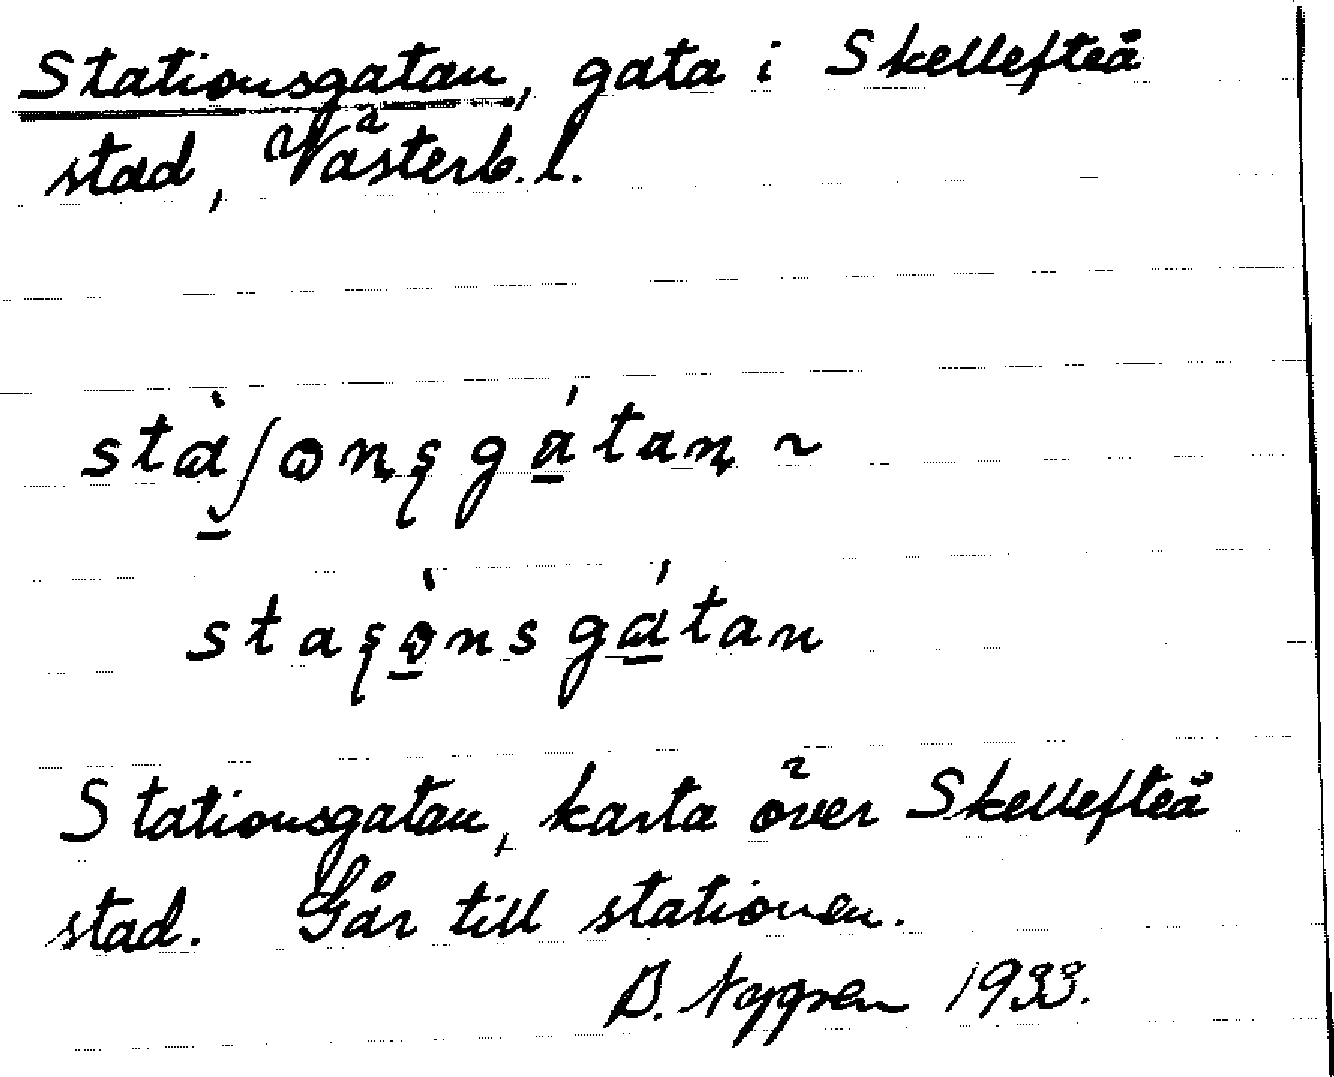 Stationsgatan, gata i Skellefteå
stad, Västerb. l.
stɑ̀ʃɷnʂgɑ́tan ~
staʂɷ̀nsgɑ́tan
Stationsgatan, karta över Skellefteå
stad. Går till stationen.
B. Nygren 1933.